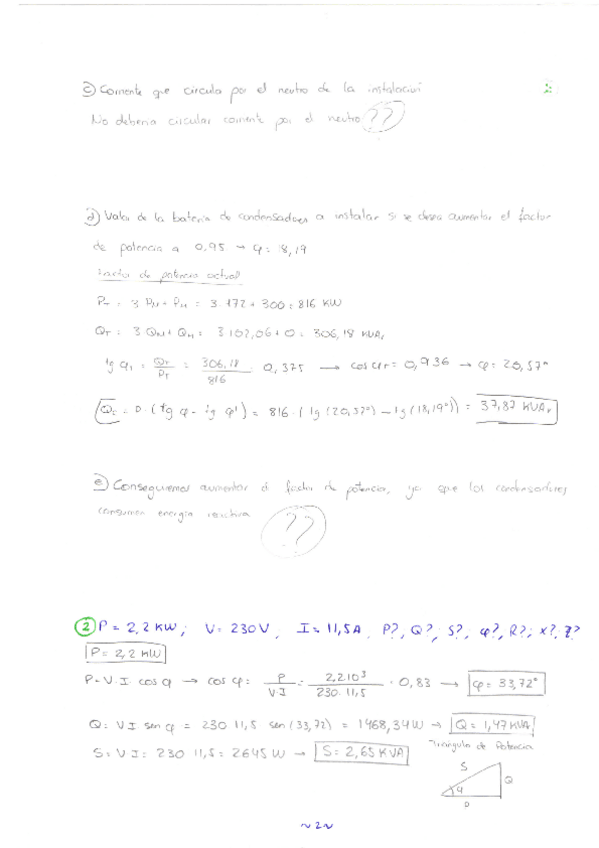 c) Corriente que circula por el neutro de la instalación
No debería circular corriente por el neutro ??
d) Valor de la batería de condensadores a instalar si se desea aumentar el factor
de potencia a 0,95 → φ: 18,19
Factor de potencia actual
PT = 3 PM + PH = 3·172 + 300 = 816 KW
QT = 3 QM + QH = 3·102,06 + 0 = 306,18 KVAr
tg φT = QT/PT = 306,18/816 = 0,375 → cos φT = 0,936 → φ = 20,57°
Qc = P·(tg φ - tg φ') = 816·(tg (20,57°) - tg (18,19°)) = 37,87 KVAr
e) Conseguiremos aumentar el factor de potencia, ya que los condensadores
consumen energía reactiva ??
2 P = 2,2 KW; V = 230 V, I = 11,5 A, P?, Q?, S?, φ?, R?; X?, Z?
P = 2,2 KW
P = V·I cos φ → cos φ: P/V·I = 2,2·10³/230·11,5 = 0,83 → φ = 33,72°
Q = V I sen φ = 230 11,5 sen (33,72) = 1468,34 W → Q = 1,47 KVA
S = V I = 230 11,5 = 2645 W → S = 2,65 KVA
Triángulo de Potencia
S
Q
φ
P
~2~